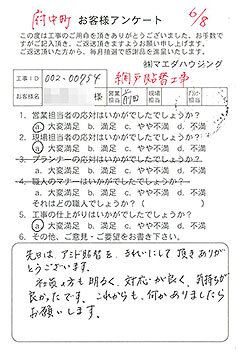 府中町 お客様アンケート 6/8
この度は工事のご用命を頂きありがとうございました。お手数で
すがご記入頂き、ご返送頂きますようお願い申し上げます。
ご返送頂いた方から、毎月抽選で感謝品を進呈いたします。
㈱マエダハウジング
工事ID 002-00954 網戸貼替工事
お客様名 様 営業担当 現場担当
1. 営業担当者の応対はいかがでしたでしょうか?
a 大変満足 b. 満足 c. やや不満 d. 不満
2. 現場担当者の応対はいかがでしたでしょうか?
a 大変満足 b. 満足 c. やや不満 d. 不満
3. プランナーの応対はいかがでしたでしょうか?
a. 大変満足 b. 満足 c. やや不満 d. 不満
4. 職人のマナーはいかがでしたでしょうか?
a 大変満足 b. 満足 c. やや不満 d. 不満
それはどの職人でしょうか?( )
5. 工事の仕上がりはいかがでしたでしょうか?
a 大変満足 b. 満足 c. やや不満 d. 不満
6. その他、ご意見・ご要望をお書き下さい。
先日は、アミド貼替を、きれいにして頂きありが
とうございます。
方も明るく、対応が良く、気持ちが
良かったです。これからも、何かありましたら
お願いします。